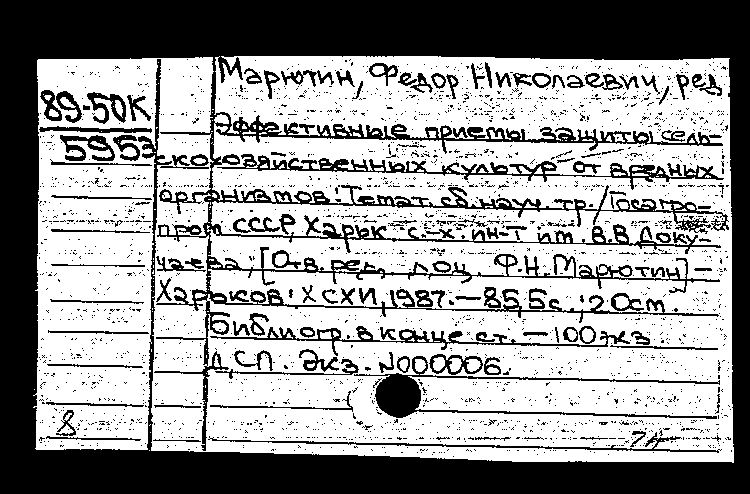 Марютин, Федор Николаевич, ред.
89-50К
5953
Эффективные приемы защиты сель-
скохозяйственных культур от вредных
организмов: Темат. сб. науч. тр. / Госагро-
пром СССР, Харьк. с.-х. ин-т им. В.В. Доку-
чаева; [Отв. ред. доц. Ф.Н. Марютин] -
Харьков: ХСХИ, 1987. - 85,5с.; 20см.
Библиогр. в конце ст. - 100 экз.
Д,СП. Экз. №000006.
8